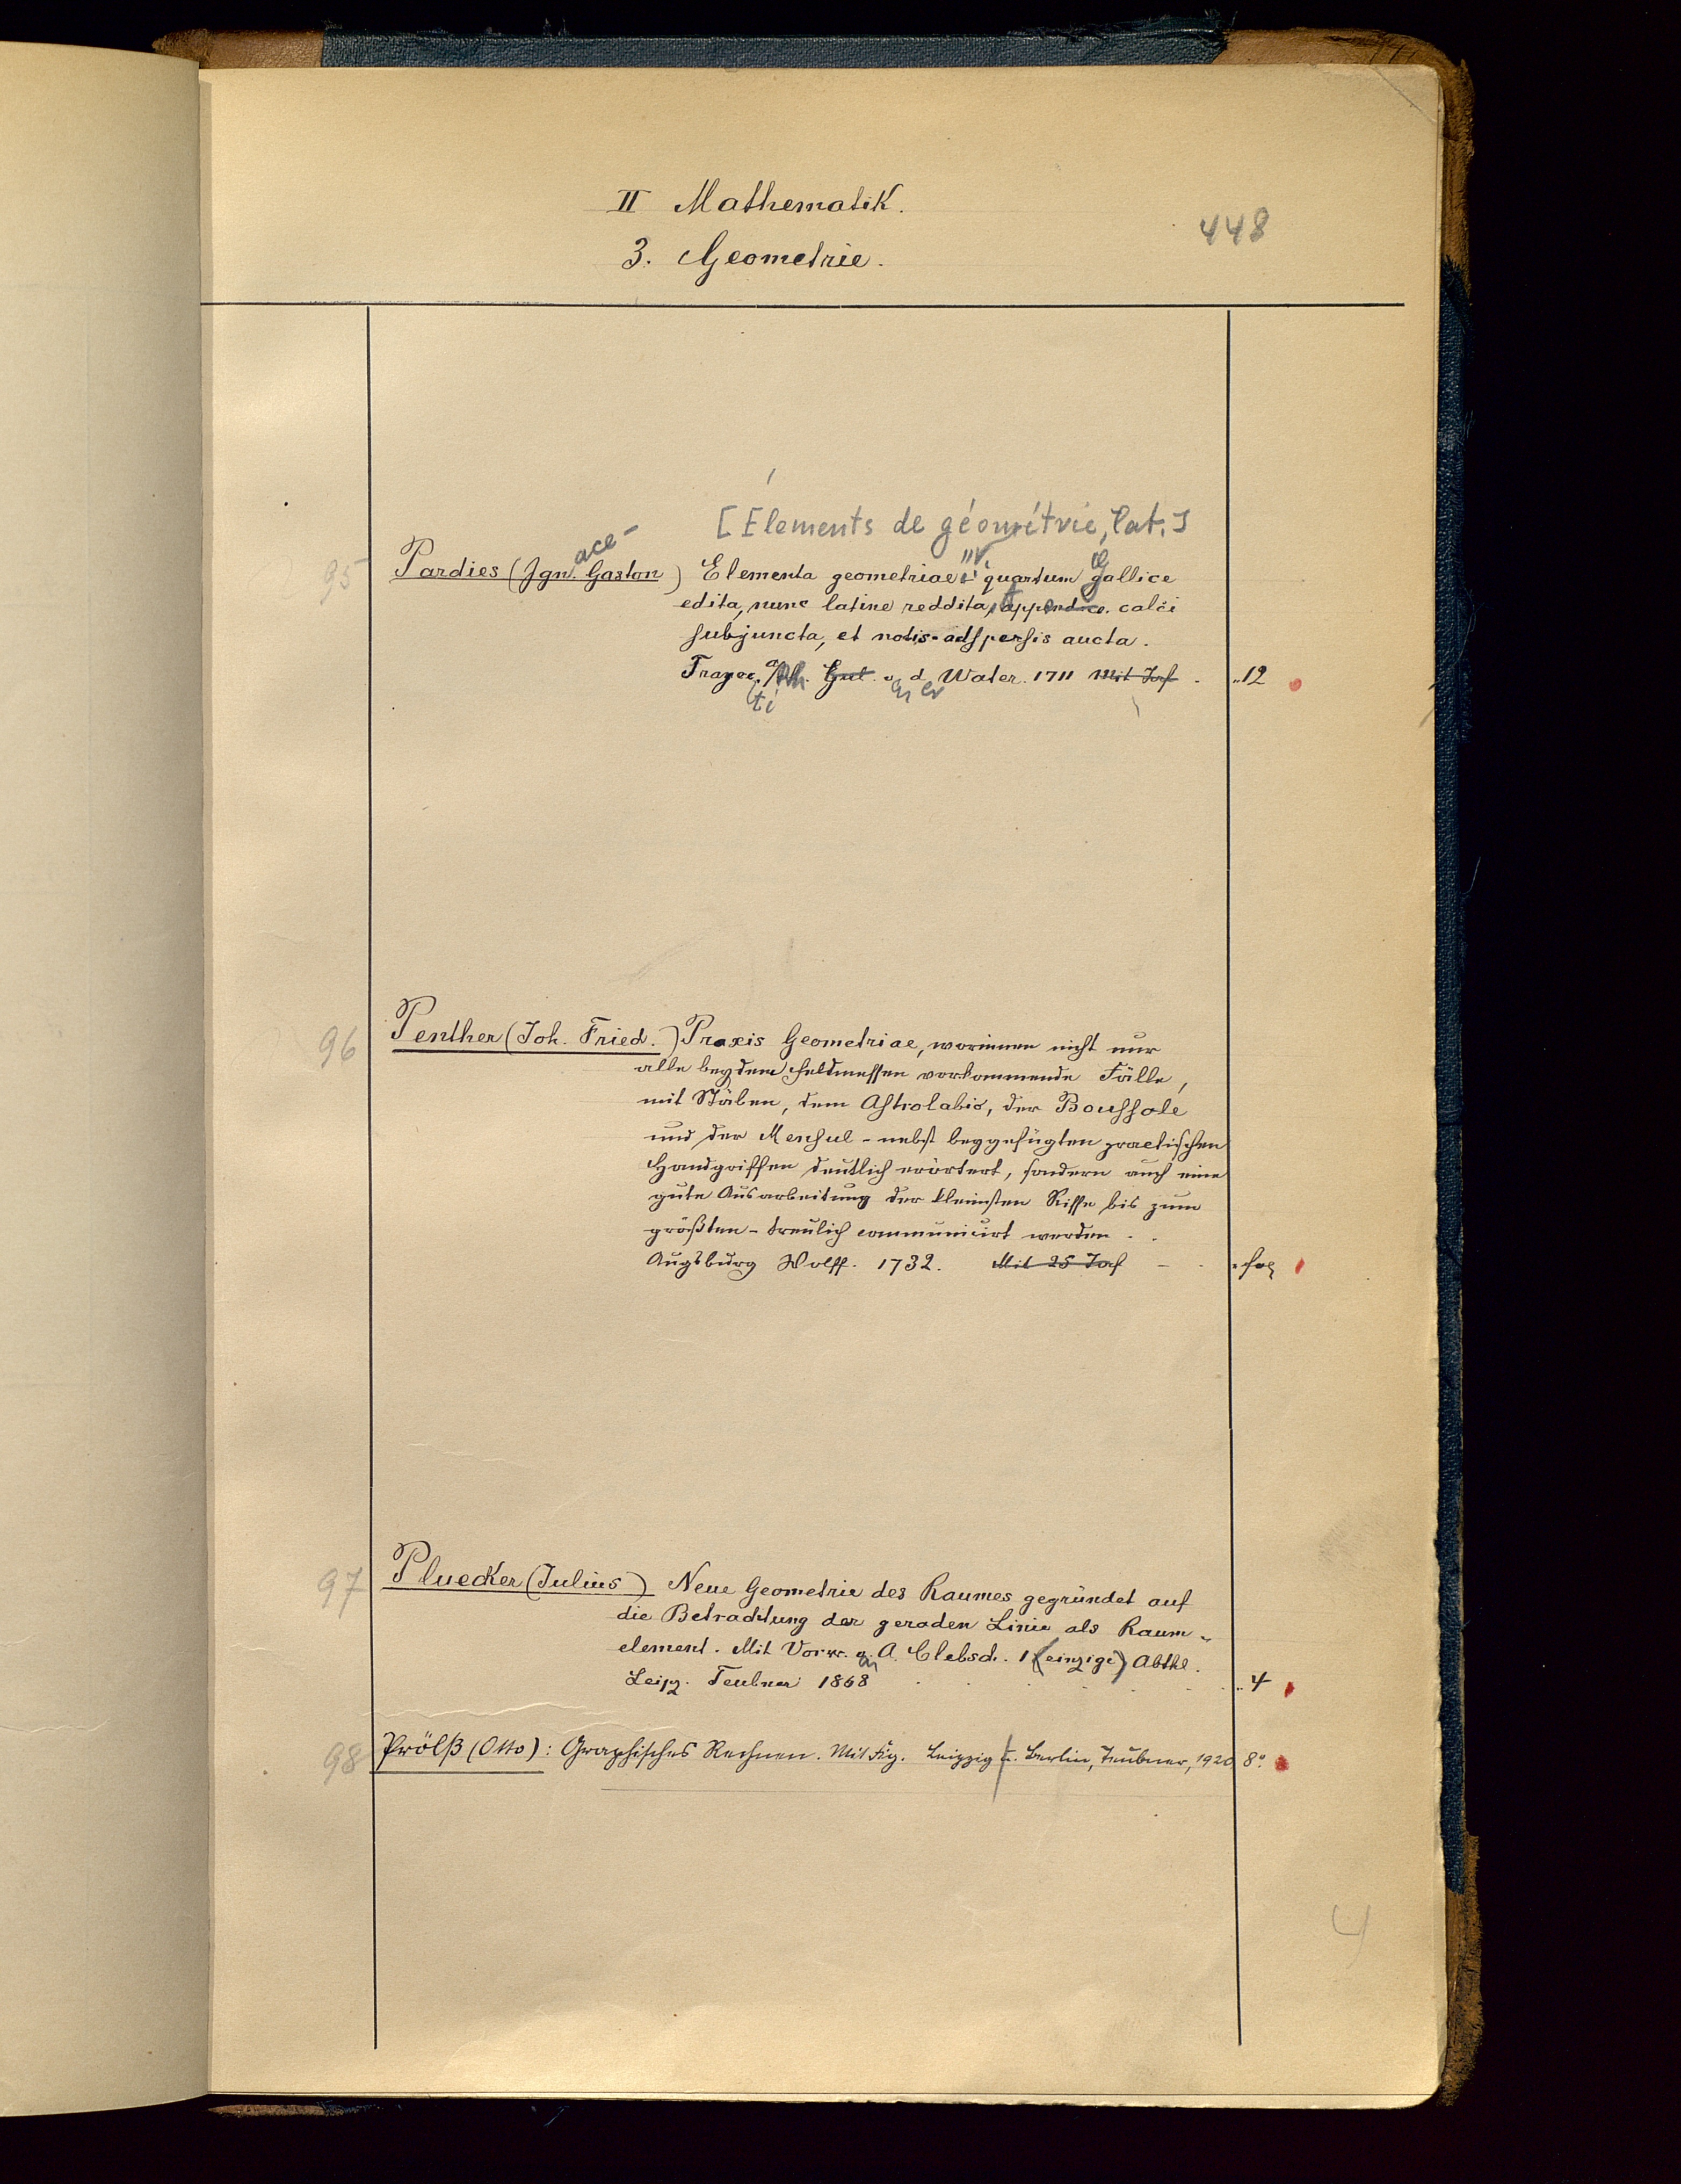 II Mathematik.
448
3. Geometrie.
[Elements de géométrie, lat.]
ace-
95 Pardies (Ign. Gaston) Elementa geometriae quartum gallice
edita, nunc latine reddita, appendice calci
subjuncta, et notis adspersis aucta.
Trajec. a/Rh. Gul. v. d. Water. 1711 Mit Taf. 12
ti en er
96 Penther (Joh. Fried.) Praxis Geometriae, worinnen nicht nur
alle bey dem Feldmessen vorkommende Fälle,
mit Stäben, dem Astrolabio, der Boussole
und der Mensul - nebst beygefügten practischen
Handgriffen deutlich erörtert, sondern auch eine
gute Ausarbeitung der kleinsten Risse bis zum
größten - treulich communicirt werden.
Augsburg Wolff. 1732. Mit 25 Taf fol
97 Pluecker (Julius) Neue Geometrie des Raumes gegründet auf
die Betrachtung der geraden Linie als Raum-
element. Mit Vorw. v. A. Clebsch. 1 (einzige) Abthl.
Leipz. Teubner 1868 4
98 Prölß (Otto): Graphisches Rechnen. Mit Fig. Leipzig u. Berlin, Teubner, 1920 8°.
4